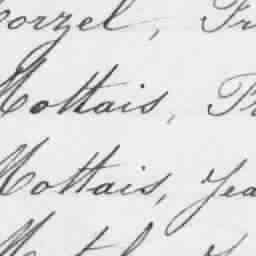 Morzel, Fr
Mottais, Fr
Mottais, Jea